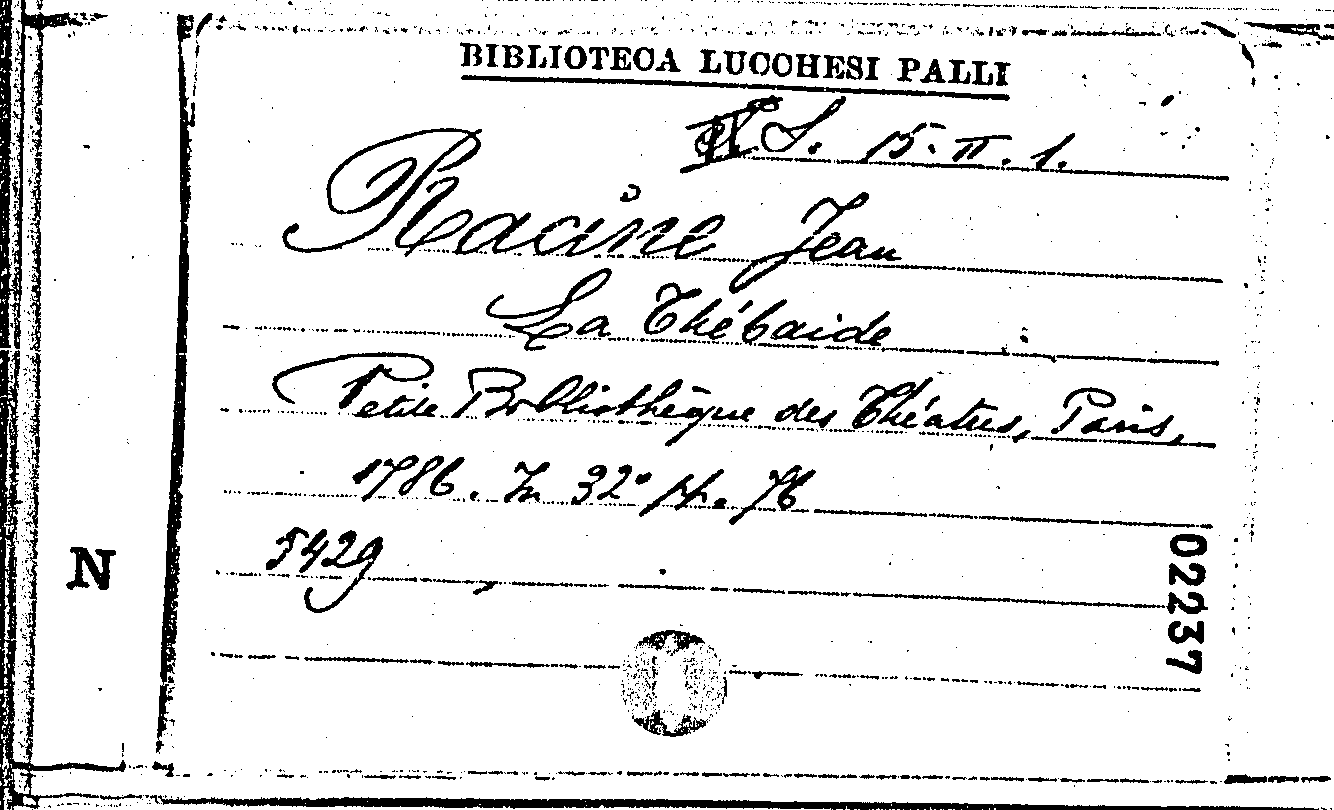 BIBLIOTECA LUCCHESI PALLI
S. 15. II. 1.
Racine Jean
La Thébaide
Petite Bibliothèque des Théatres, Paris,
1786. In 32° pp. 76
5429
N
02237